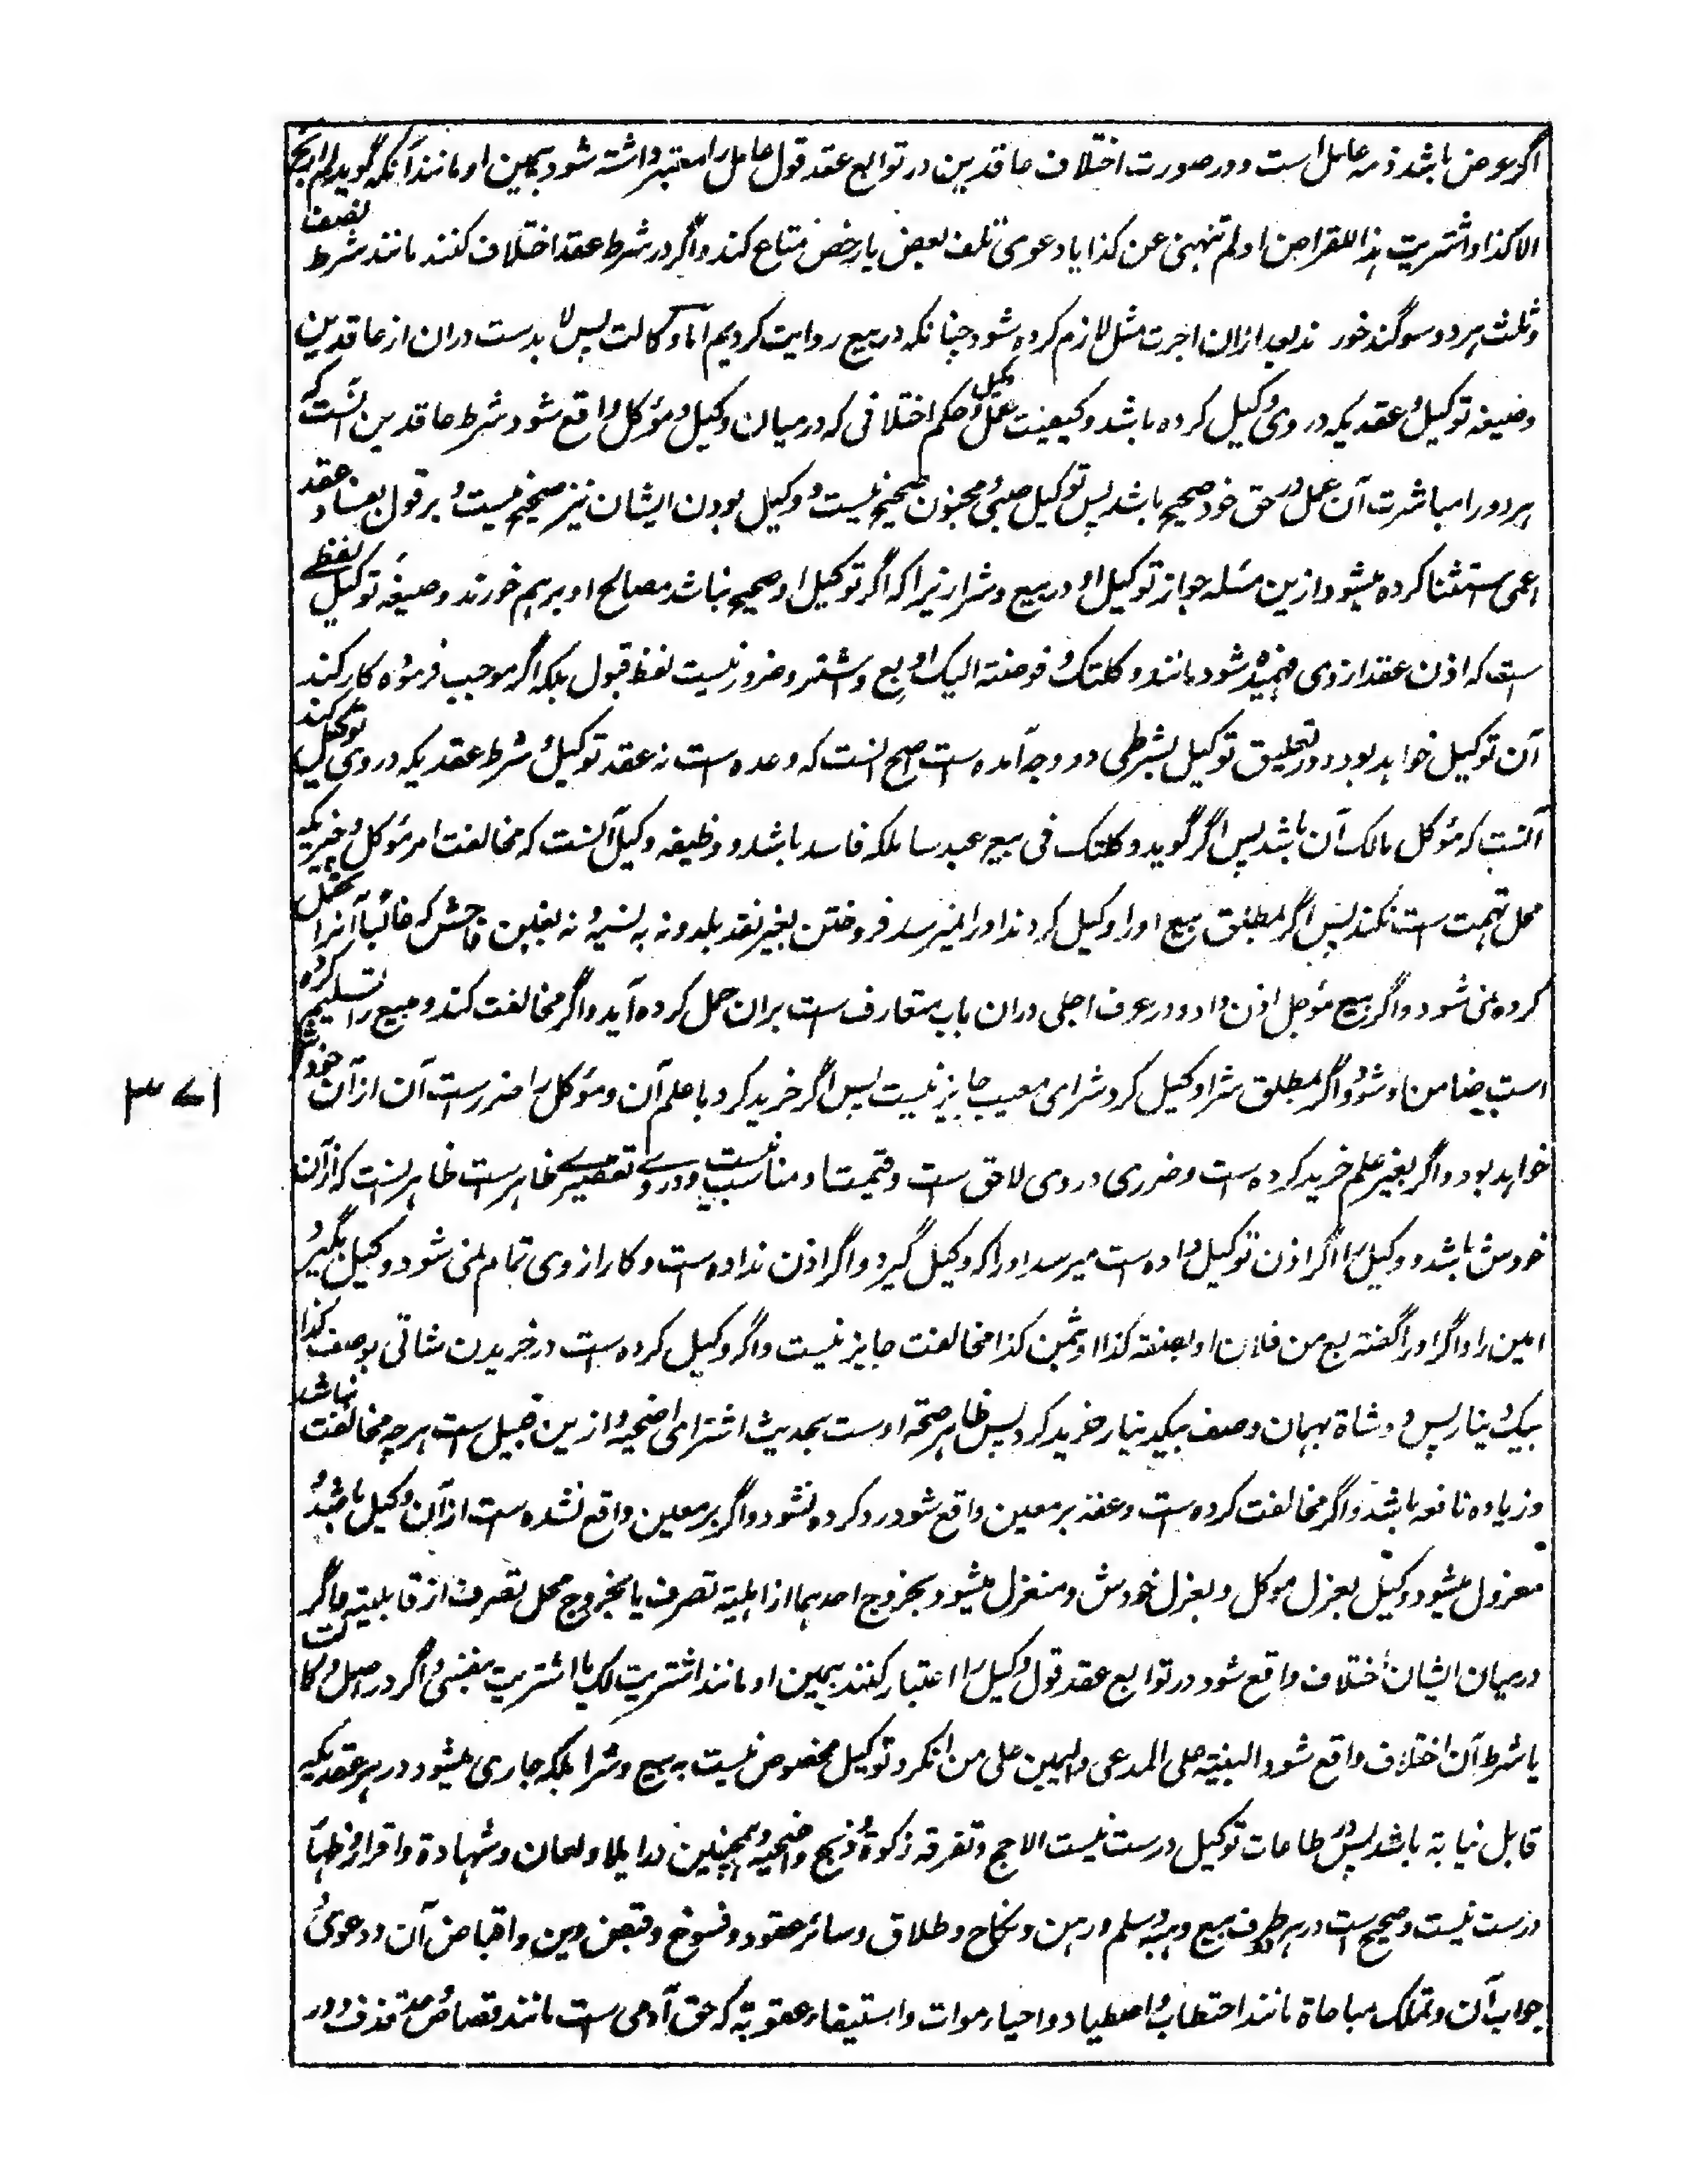 اگر عوض باشد ذمه عامل است و در صورت اختلاف عاقدین در توابع عقد قول عامل را معتبر داشته شود بیمین او مانند آنکه گوید لم اربح
الا کذا و اشتریت هذا للقراض او لم تنهنی عن کذا یا دعوی تلف بعض یا رخص متاع کند و اگر در شرط عقد اختلاف کنند مانند شرط نصف
و ثلث هر دو سوگند خورند بعد ازان اجرت مثل لازم کرده شود چنانکه در بیع روایت کردیم اما وکالت پس لا بدست دران از عاقدین
و صیغه توکیل و عقدیکه در وی وکیل کرده باشد و کیفیت عمل وکیل و حکم اختلافی که در میان وکیل و مؤکل واقع شود شرط عاقدین آنست که
هر دو را مباشرت آن عمل در حق خود صحیح باشد پس توکیل صبی و مجنون صحیح نیست و وکیل بودن ایشان نیز صحیح نیست و بر قول بفساد عقد
اعمی استثنا کرده میشود ازین مسئله جواز توکیل او در بیع و شرا زیرا که اگر توکیل او صحیح نباشد مصالح او برهم خورند و صیغه توکیل لفظے
ست که اذن عقد از وی فهمیده شود مانند وکلتک و فوضته الیک او بع و اشتر و ضرور نیست لفظ قبول بلکه اگر موجب فرموده کار کند
آن توکیل خواهد بود و در تعلیق توکیل بشرطی دو وجه آمده ست اصح آنست که وعده ست نه عقد توکیل و شرط عقدیکه در وی توکیل کند
آنست که مؤکل مالک آن باشد پس اگر گوید وکلتک فی بیع عبد ساملکه فاسد باشد و وظیفه وکیل آنست که مخالفت امر مؤکل و چیزیکه
محل تهمت ست نکند پس اگر بمطلق بیع او را وکیل کردند او را نمیرسد فروختن بغیر نقد بلد و نه به نسیه و نه بغبن فاحش که غالبا آنرا تحمل
کرده نمی شود و اگر ببیع مؤجل اذن داد و در عرف اجلی دران باب متعارف ست بران حمل کرده آید و اگر مخالفت کند و مبیع را تسلیم کرده
است ضامن او شود و اگر بمطلق شرا وکیل کرد شرای معیب جایز نیست پس اگر خرید کرد با علم آن و مؤکل را ضرر ست آن از آن خودش
خواهد بود و اگر بغیر علم خرید کرده ست و ضرری در وی لاحق ست و قیمت او مناسب نیست و در وے تقصیرے ظاهر ست ظاهر آنست که از آن
خودش باشد و وکیل را اگر اذن توکیل داده ست میرسد او را که وکیل گیرد و اگر اذن نداده ست و کار از وی تمام نمی شود وکیل بگیرد
امین را و اگر او را گفته بع من فلان او بصفة کذا او بثمن کذا مخالفت جایز نیست و اگر وکیل کرده ست در خریدن شاتی بوصف کذا
بیک دینار پس دو شاة بهمان وصف بیکدینار خرید کرد پس ظاهر صحة اوست بحدیث اشترای اضحیه و ازین قبیل ست هر چه مخالفت نباشد
و زیاده نافعه باشد و اگر مخالفت کرده ست و عقد بر معین واقع شود رد کرده نشود و اگر بر معین واقع نشده ست از آن وکیل باشد و
معزول میشود وکیل بعزل موکل و بعزل خودش و منعزل میشود بخروج احدهما از اهلیة تصرف یا بخروج محل تصرف از قابلیة و اگر
درمیان ایشان اختلاف واقع شود در توابع عقد قول وکیل را اعتبار کنند بیمین او مانند اشتریت لک یا اشتریت لنفسی و اگر در اصل وکالت
یا شرط آن اختلاف واقع شود البینة علی المدعی و الیمین علی من انکر و توکیل مخصوص نیست به بیع و شرا بلکه جاری میشود در هر عقدیکه
قابل نیابة باشد پس در طاعات توکیل درست نیست الا حج و تفرقه زکوة و ذبح اضحیه و همچنین در ایلا و لعان و شهادة و اقرار و ظهار
درست نیست و صحیح ست در هر طرف بیع و هبه و سلم و رهن و نکاح و طلاق و سائر عقود و فسوخ و قبض دین و اقباض آن و دعوی و
جواب آن و تملک مباحاة مانند احتطاب و اصطیاد و احیاء موات و استیفاء عقوبة که حق آدمی ست مانند قصاص و حد قذف و در
۳۷۱